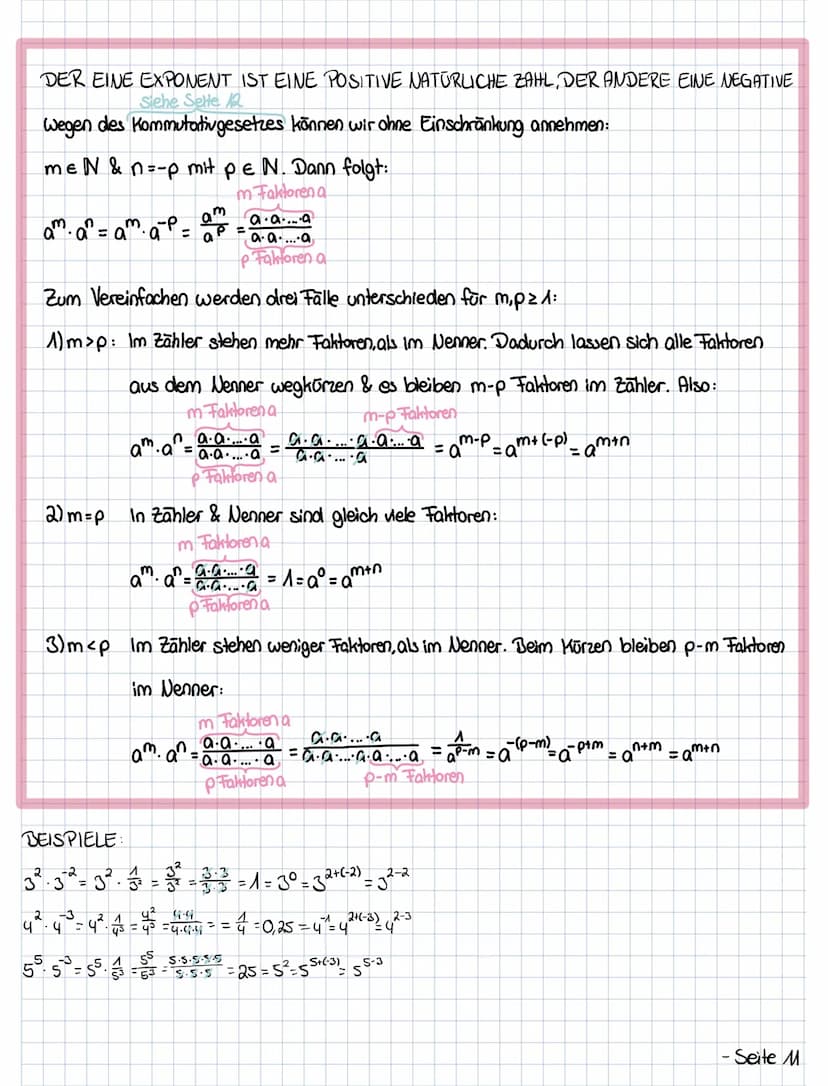 DER EINE EXPONENT IST EINE POSITIVE NATÜRLICHE ZAHL, DER ANDERE EINE NEGATIVE
siehe Seite 12
Wegen des Kommutativgesetzes können wir ohne Einschränkung annehmen:
m ∈ ℕ & n = -p mit p ∈ ℕ. Dann folgt:
m Faktoren a
aᵐ · aⁿ = aᵐ · a⁻ᵖ = aᵐ/aᵖ = (a·a·...·a)/(a·a·...·a)
p Faktoren a
Zum Vereinfachen werden drei Fälle unterschieden für m, p ≥ 1:
1) m > p: Im Zähler stehen mehr Faktoren, als im Nenner. Dadurch lassen sich alle Faktoren
aus dem Nenner wegkürzen & es bleiben m-p Faktoren im Zähler. Also:
m Faktoren a m-p Faktoren
aᵐ · aⁿ = (a·a·...·a)/(a·a·...·a) = (a·a·...·a·a·...·a)/(a·a·...·a) = aᵐ⁻ᵖ = aᵐ⁺⁽⁻ᵖ⁾ = aᵐ⁺ⁿ
p Faktoren a
2) m = p In Zähler & Nenner sind gleich viele Faktoren:
m Faktoren a
aᵐ · aⁿ = (a·a·...·a)/(a·a·...·a) = 1 = a⁰ = aᵐ⁺ⁿ
p Faktoren a
3) m < p Im Zähler stehen weniger Faktoren, als im Nenner. Beim Kürzen bleiben p-m Faktoren
im Nenner:
m Faktoren a
aᵐ · aⁿ = (a·a·...·a)/(a·a·...·a) = (a·a·...·a)/(a·a·...·a·a·...·a) = 1/aᵖ⁻ᵐ = a⁻⁽ᵖ⁻ᵐ⁾ = a⁻ᵖ⁺ᵐ = aⁿ⁺ᵐ = aᵐ⁺ⁿ
p Faktoren a p-m Faktoren
BEISPIELE:
3² · 3⁻² = 3² · 1/3² = 3²/3² = (3·3)/(3·3) = 1 = 3⁰ = 3²⁺⁽⁻²⁾ = 3²⁻²
4² · 4⁻³ = 4² · 1/4³ = 4²/4³ = (4·4)/(4·4·4) = = 1/4 = 0,25 = 4⁻¹ = 4²⁺⁽⁻³⁾ = 4²⁻³
5⁵ · 5⁻³ = 5⁵ · 1/5³ = 5⁵/5³ = (5·5·5·5·5)/(5·5·5) = 25 = 5² = 5⁵⁺⁽⁻³⁾ = 5⁵⁻³
- Seite 11